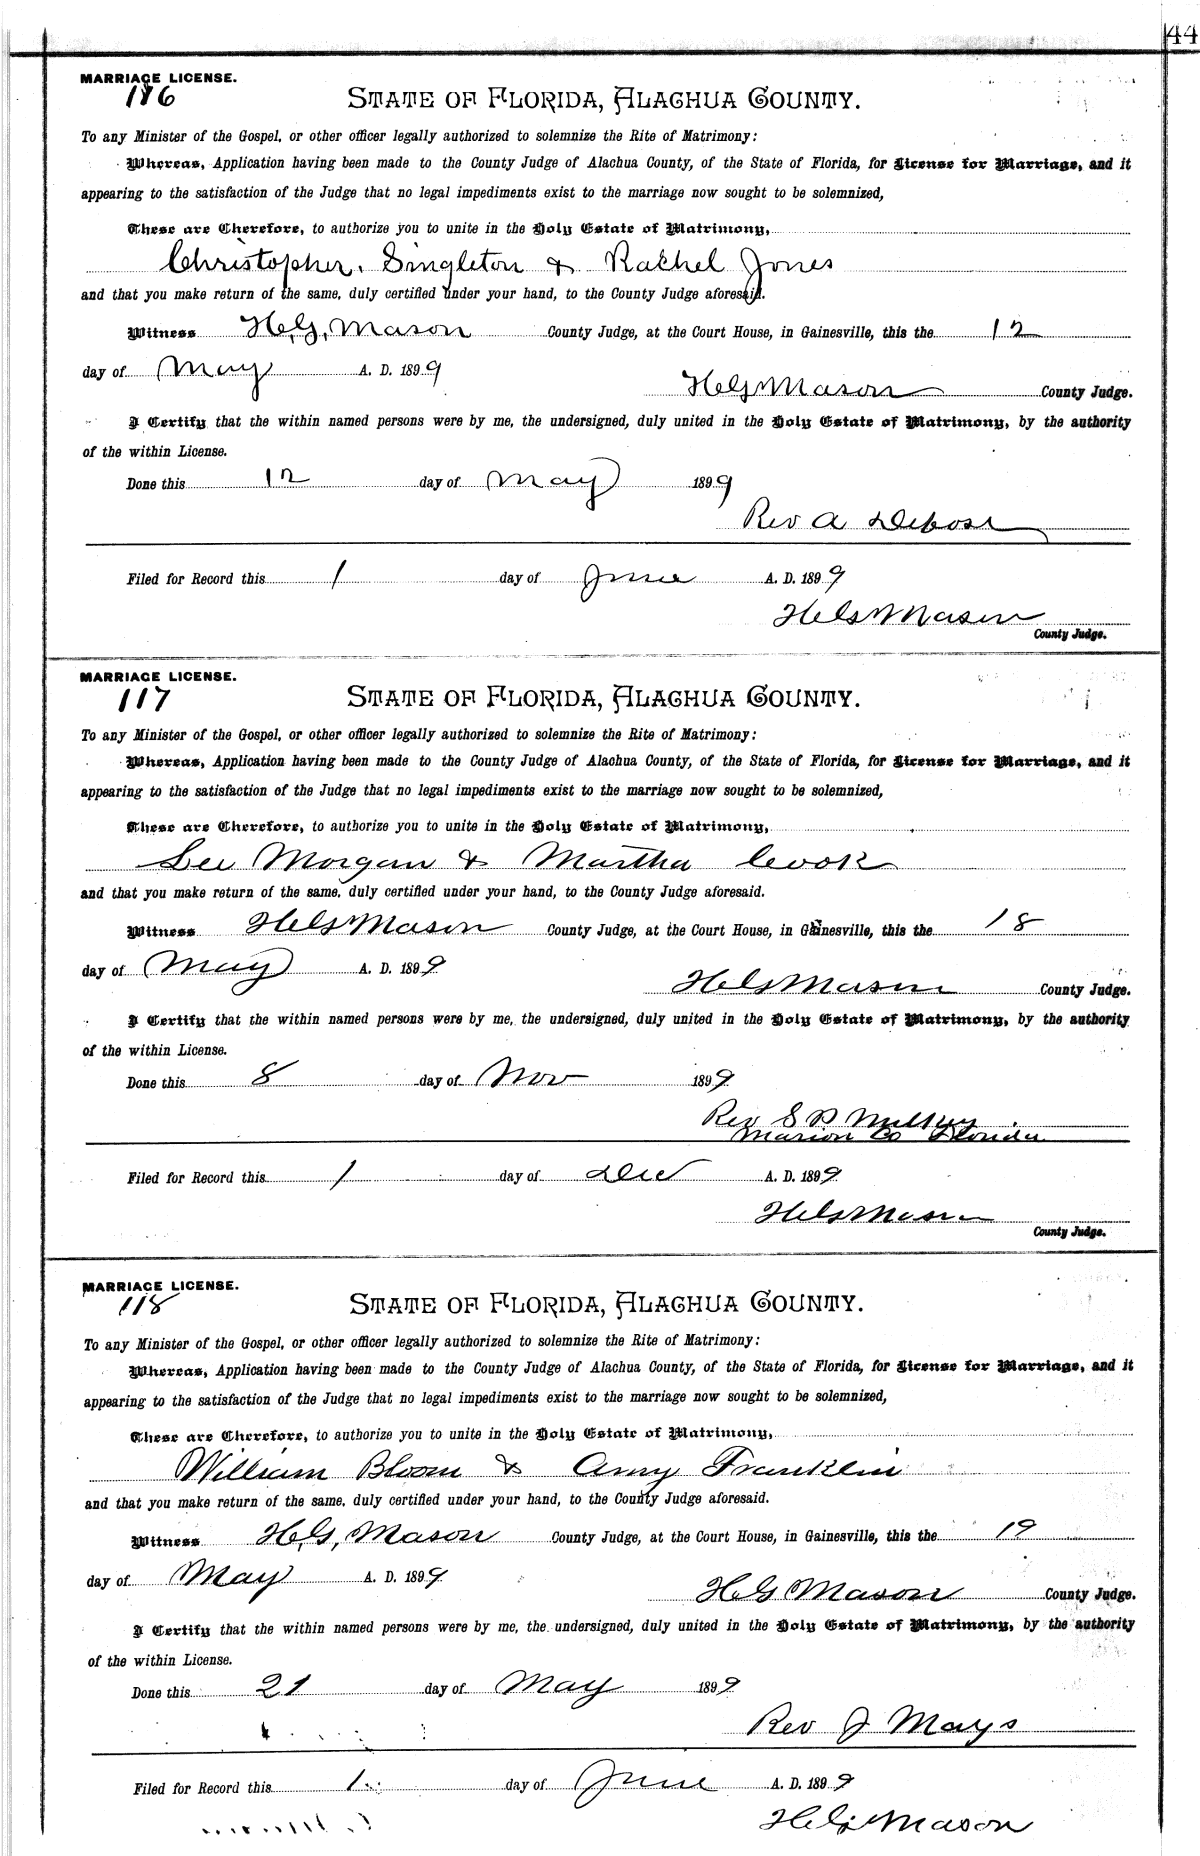 44
MARRIAGE LICENSE.
116
STATE OF FLORIDA, ALACHUA COUNTY.
To any Minister of the Gospel, or other officer legally authorized to solemnize the Rite of Matrimony:
Whereas, Application having been made to the County Judge of Alachua County, of the State of Florida, for License for Marriage, and it
appearing to the satisfaction of the Judge that no legal impediments exist to the marriage now sought to be solemnized,
These are Therefore, to authorize you to unite in the Holy Estate of Matrimony,
Christopher Singleton & Rachel Jones
and that you make return of the same, duly certified under your hand, to the County Judge aforesaid.
Witness H.G. Mason County Judge, at the Court House, in Gainesville, this the 12
day of May A. D. 1899
HG Mason County Judge.
I Certify that the within named persons were by me, the undersigned, duly united in the Holy Estate of Matrimony, by the authority
of the within License.
Done this 12 day of May 1899
Rev A Debose
Filed for Record this 1 day of June A. D. 1899
HG Mason
County Judge.
MARRIAGE LICENSE.
117
STATE OF FLORIDA, ALACHUA COUNTY.
To any Minister of the Gospel, or other officer legally authorized to solemnize the Rite of Matrimony:
Whereas, Application having been made to the County Judge of Alachua County, of the State of Florida, for License for Marriage, and it
appearing to the satisfaction of the Judge that no legal impediments exist to the marriage now sought to be solemnized,
These are Therefore, to authorize you to unite in the Holy Estate of Matrimony,
Lee Morgan & Martha Cook
and that you make return of the same, duly certified under your hand, to the County Judge aforesaid.
Witness HG Mason County Judge, at the Court House, in Gainesville, this the 18
day of May A. D. 1899
HG Mason County Judge.
I Certify that the within named persons were by me, the undersigned, duly united in the Holy Estate of Matrimony, by the authority
of the within License.
Done this 8 day of Nov 1899
Rev S P
Marion Co Florida
Filed for Record this 1 day of Dec A. D. 1899
HG Mason
County Judge.
MARRIAGE LICENSE.
118
STATE OF FLORIDA, ALACHUA COUNTY.
To any Minister of the Gospel, or other officer legally authorized to solemnize the Rite of Matrimony:
Whereas, Application having been made to the County Judge of Alachua County, of the State of Florida, for License for Marriage, and it
appearing to the satisfaction of the Judge that no legal impediments exist to the marriage now sought to be solemnized,
These are Therefore, to authorize you to unite in the Holy Estate of Matrimony,
William Bloom & Amy Franklin
and that you make return of the same, duly certified under your hand, to the County Judge aforesaid.
Witness H.G. Mason County Judge, at the Court House, in Gainesville, this the 19
day of May A. D. 1899
HG Mason County Judge.
I Certify that the within named persons were by me, the undersigned, duly united in the Holy Estate of Matrimony, by the authority
of the within License.
Done this 21 day of May 1899
Rev J Mays
Filed for Record this 1 day of June A. D. 1899
HG Mason